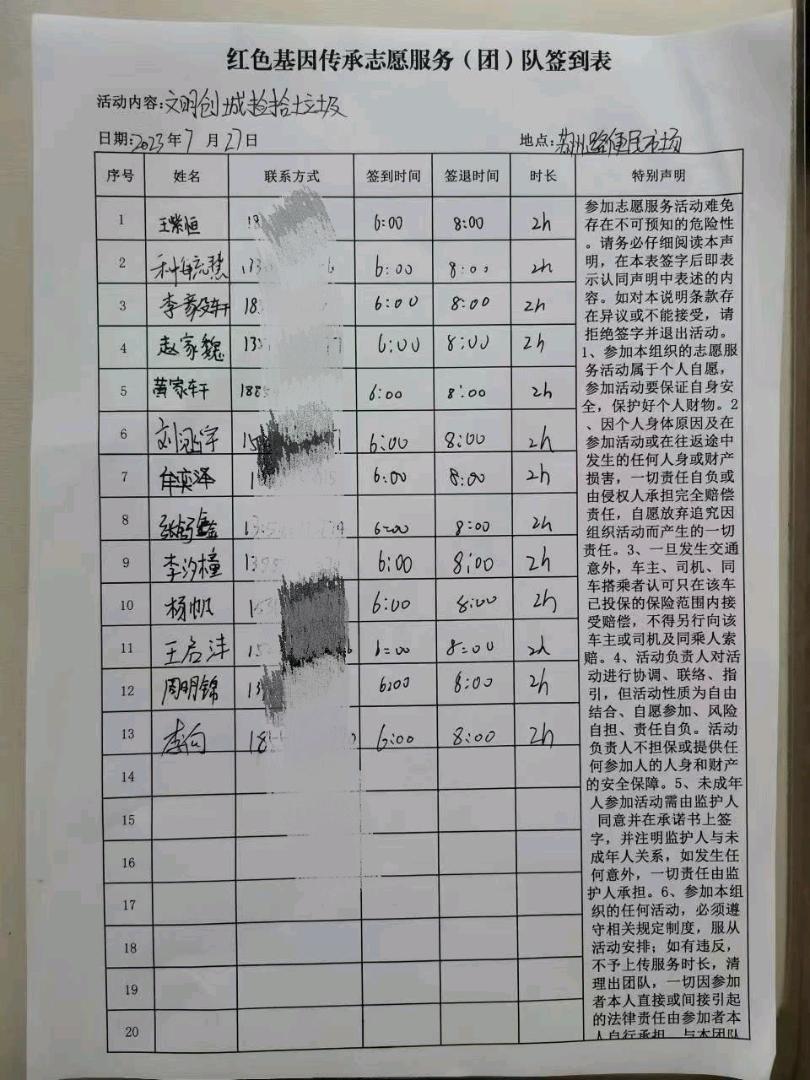 红色基因传承志愿服务（团）队签到表
活动内容:文明创城捡拾垃圾
日期:2023年7月27日 地点:苏州路便民市场
序号 姓名 联系方式 签到时间 签退时间 时长 特别声明
1 王紫恒 6:00 8:00 2h
2 6:00 8:00 2h
3 18 6:00 8:00 2h
4 赵家魏 6:00 8:00 2h
5 黄家轩 188 6:00 8:00 2h
6 15 6:00 8:00 2h
7 牟奕泽 6:00 8:00 2h
8 6:00 8:00 2h
9 李汐橦 6:00 8:00 2h
10 杨帆 6:00 8:00 2h
11 王启沣 8:00 2h
12 周明锦 6:00 8:00 2h
13 李向 18 6:00 8:00 2h
14
15
16
17
18
19
20
参加志愿服务活动难免
存在不可预知的危险性
。请务必仔细阅读本声
明，在本表签字后即表
示认同声明中表述的内
容。如对本说明条款存
在异议或不能接受，请
拒绝签字并退出活动。
1、参加本组织的志愿服
务活动属于个人自愿，
参加活动要保证自身安
全，保护好个人财物。2
、因个人身体原因及在
参加活动或在往返途中
发生的任何人身或财产
损害，一切责任自负或
由侵权人承担完全赔偿
责任，自愿放弃追究因
组织活动而产生的一切
责任。3、一旦发生交通
意外，车主、司机、同
车搭乘者认可只在该车
已投保的保险范围内接
受赔偿，不得另行向该
车主或司机及同乘人索
赔。4、活动负责人对活
动进行协调、联络、指
引，但活动性质为自由
结合、自愿参加、风险
自担、责任自负。活动
负责人不担保或提供任
何参加人的人身和财产
的安全保障。5、未成年
人参加活动需由监护人
同意并在承诺书上签
字，并注明监护人与未
成年人关系，如发生任
何意外，一切责任由监
护人承担。6、参加本组
织的任何活动，必须遵
守相关规定制度，服从
活动安排；如有违反，
不予上传服务时长，清
理出团队，一切因参加
者本人直接或间接引起
的法律责任由参加者本
人自行承担，与本团队